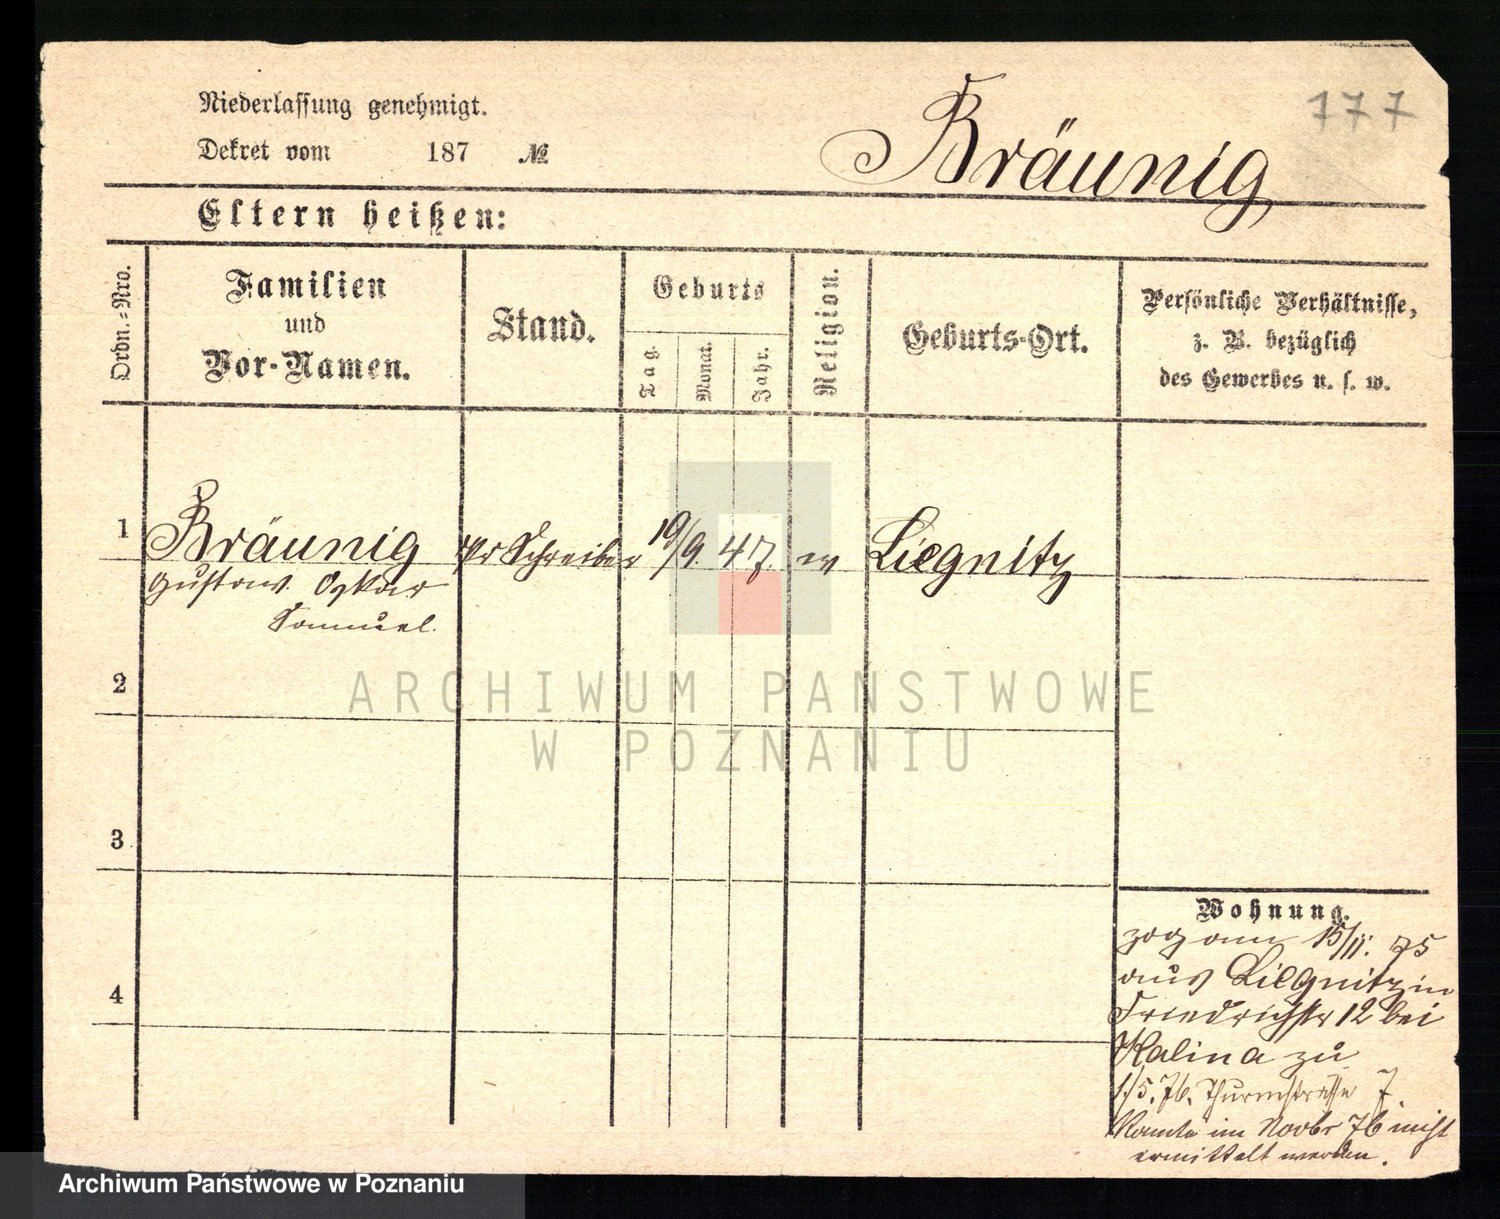 Niederlassung genehmigt.
Dekret vom 187 №
Bräunig
177
Eltern heißen:
Ordn.=Nro.
Familien
und
Vor-Namen.
Stand.
Geburts
Tag.
Monat.
Jahr.
Religion.
Geburts-Ort.
Persönliche Verhältnisse,
z. B. bezüglich
des Gewerbes u. s. w.
1 Bräunig Schreiber 19/9. 47. Liegnitz
Gustav. Oskar
Samuel.
2
3
4
Wohnung.
zog am 15/11. 75
aus Liegnitz in
Friedrichstr 12 bei
Kalina zu
1/5. 76. Thurmstrasse 7.
Konnte im Novbr 76 nicht
ermittelt werden.
ARCHIWUM PAŃSTWOWE
W POZNANIU
Archiwum Państwowe w Poznaniu